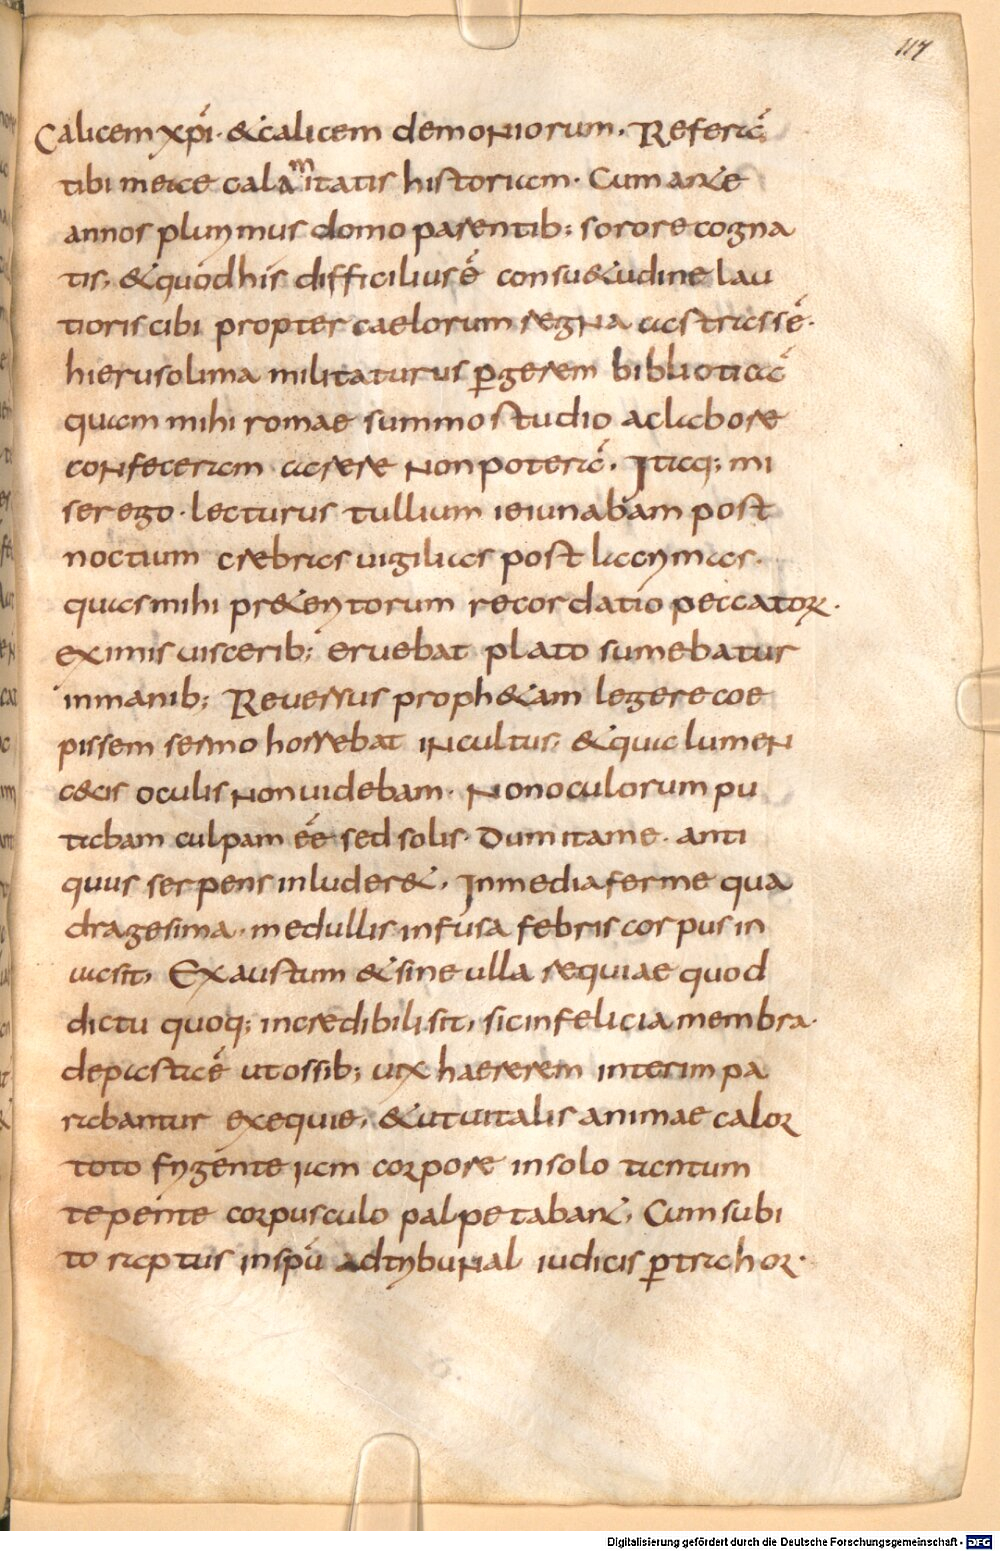 117
Calicem xp̄i. & calicem demoniorum. Referā
tibi meae calamitatis historiam. Cum ante
annos plurymus domo parentib; sorore cogna
tis, & quod his difficilius ē consu&udine lau
tioris cibi propter caelorum regna castrassē.
hierusolima militaturus pgerem biblioticā
quam mihi romae summo studio ac labore
confeceram carere non poterā. Itaq; mi
ser ego. lecturus tullium ieiunabam post
noctium crebras uigilias post lacrymas.
quas mihi pr&erytorum recordatio peccator.
eximis uiscerib; eruebat plato sumebatur
inmanib; Reuersus proph&am legere coe
pissem sermo horrebat incultus, & quia lumen
cęcis oculis non uidebam. Non oculorum pu
tabam culpam eē sed solis. Dum ita me. anti
quus serpens inluder&. In media ferme qua
dragesima. medullis infusa febris corpus in
uasit, Exaustum & sine ulla requiae quod
dictu quoq; incredibili sit, sic infelicia membra.
depastaē ut ossib; uix haererem interim pa
rabantur exequie, & ut uitalis animae calor
toto frygente iam corpore in solo tantum
tepente corpusculo palpetabant, Cum subi
to raptus in spū ad trybunal iudicis ptrahor.
Digitalisierung gefördert durch die Deutsche Forschungsgemeinschaft - DFG